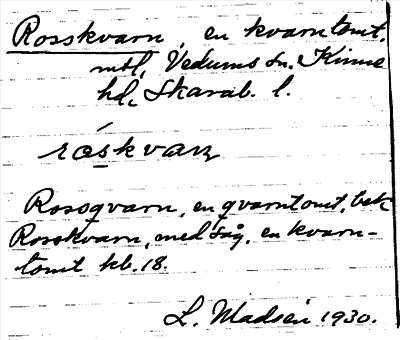 Rosskvarn, en kvarntomt,
mtl, Vedums sn. Kinne
hd, Skarab. l.
róskvaṉ
Rossqvarn, en qvarntomt, bek
Rosskvarn, med såg, en kvarn-
tomt kb. 18.
L. Madsén 1930.